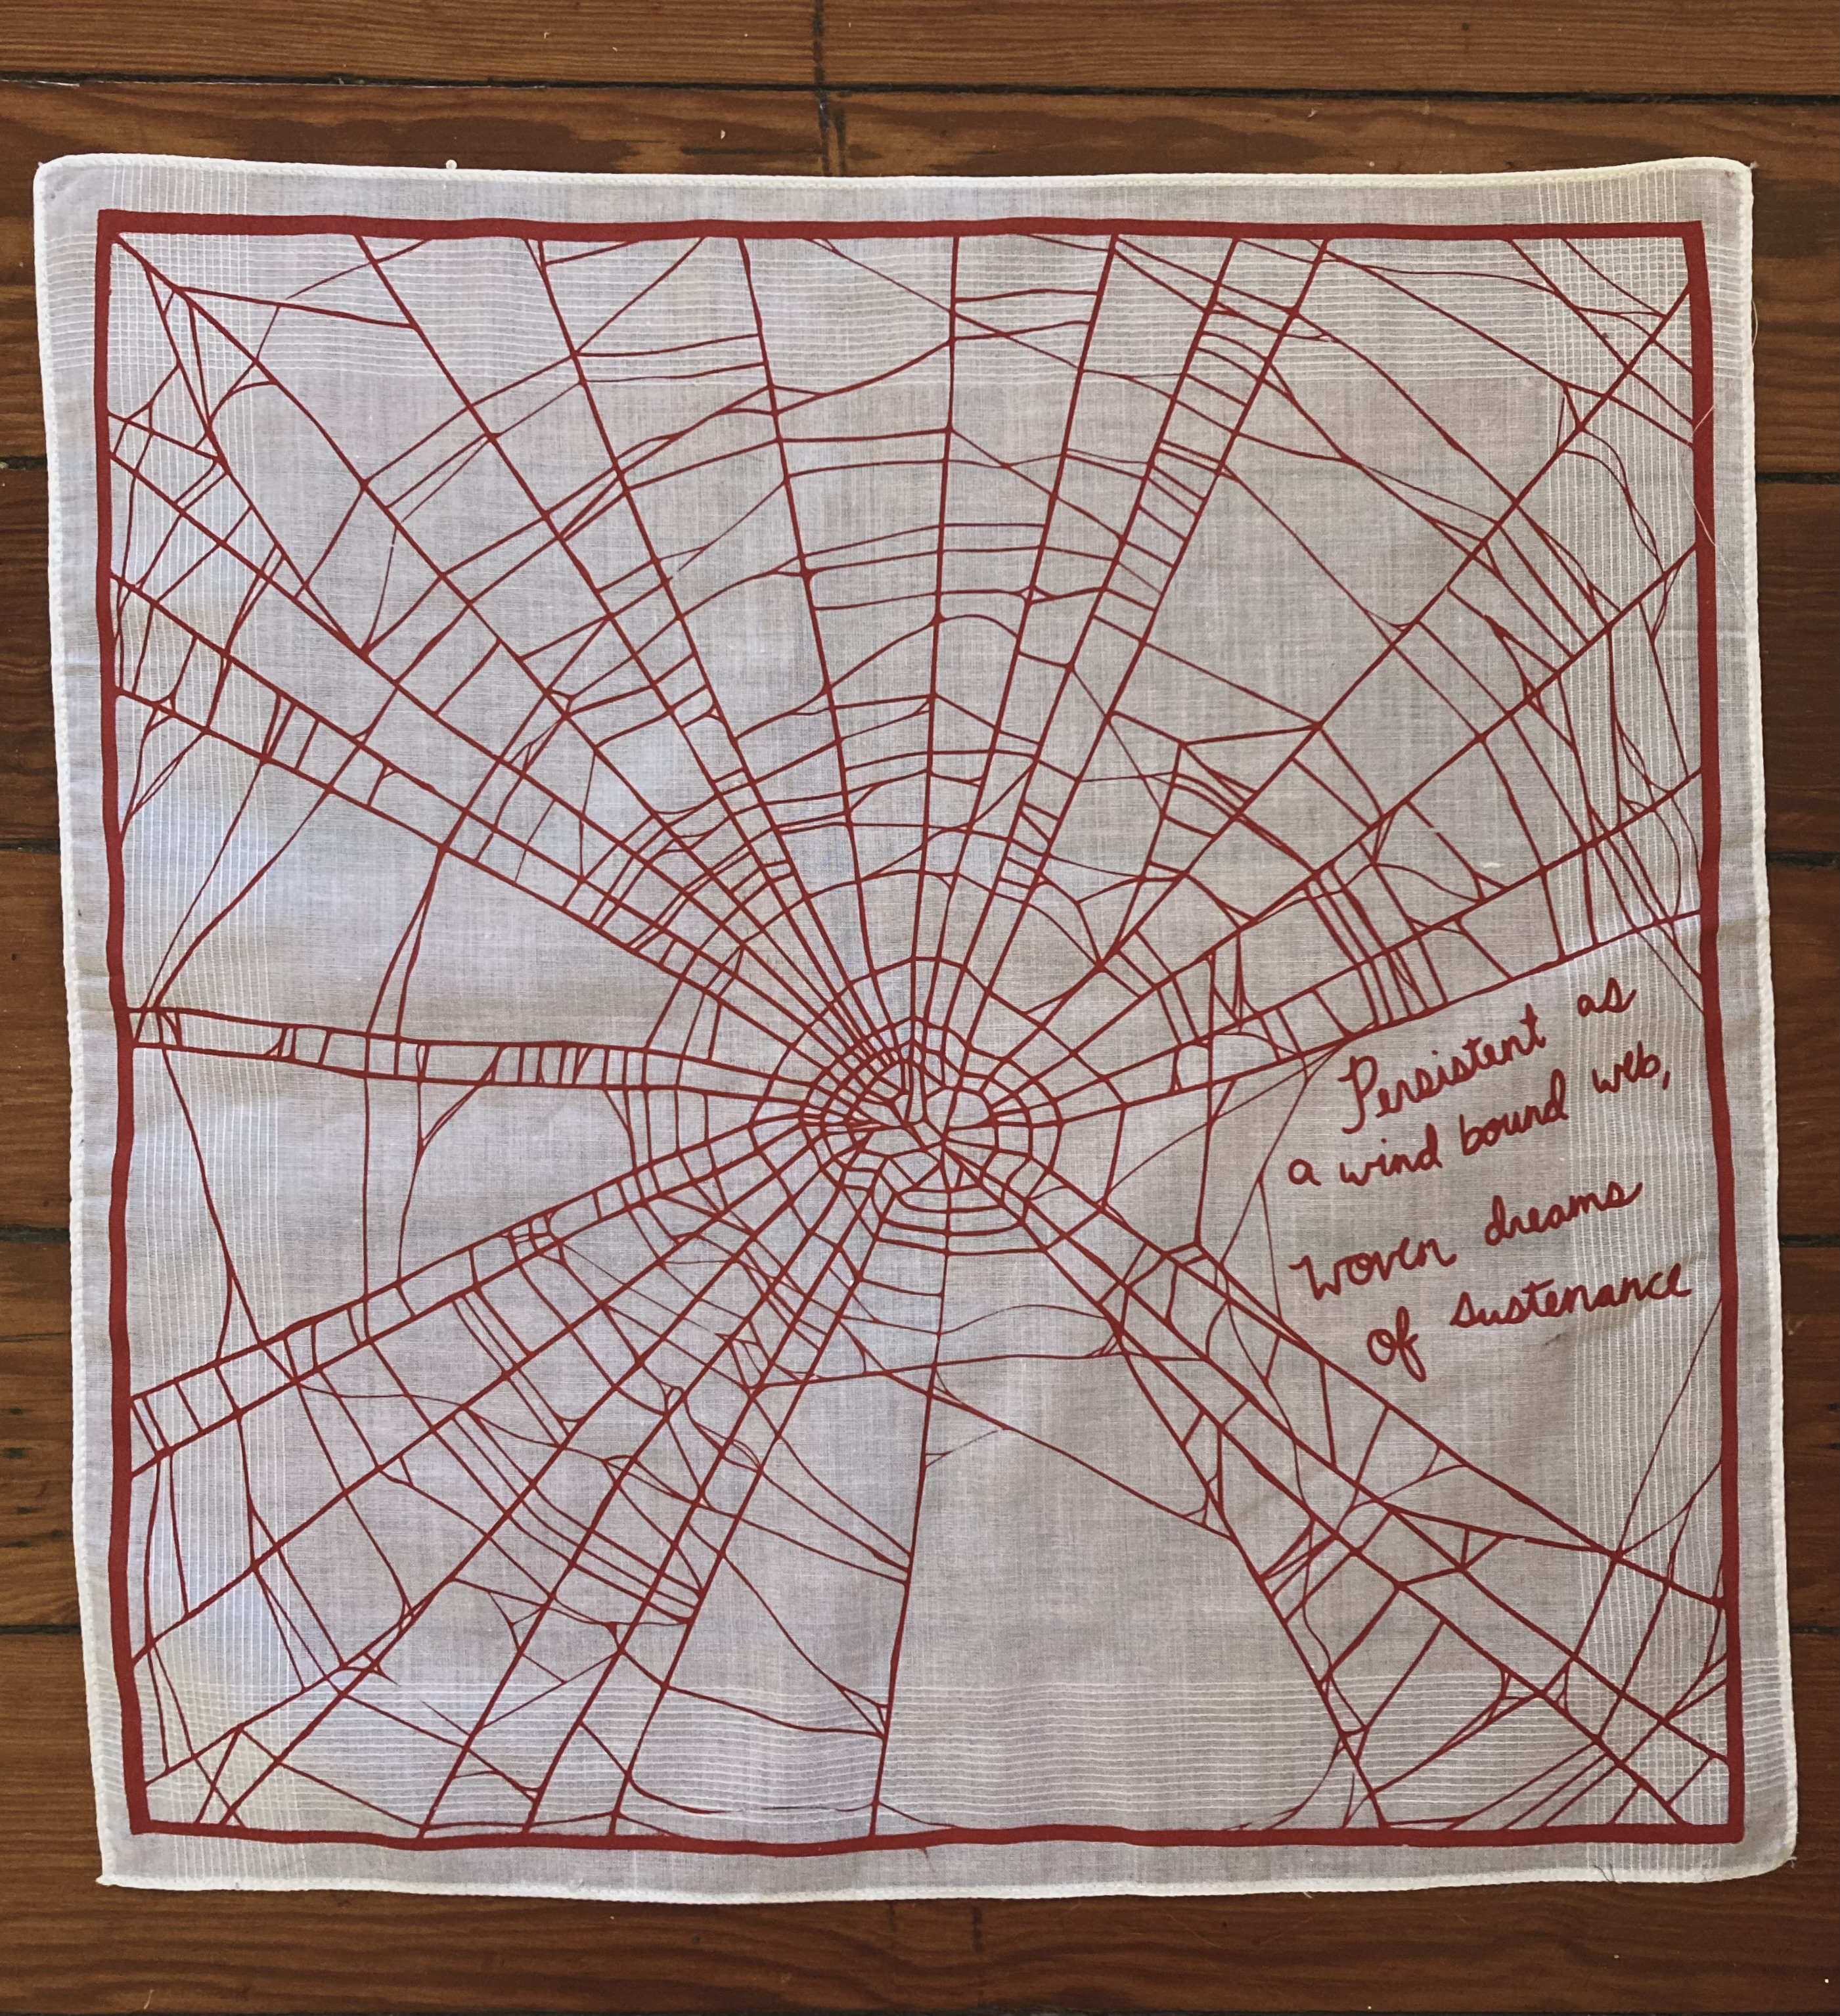 Persistent as
a wind bound web,
woven dreams
of sustenance